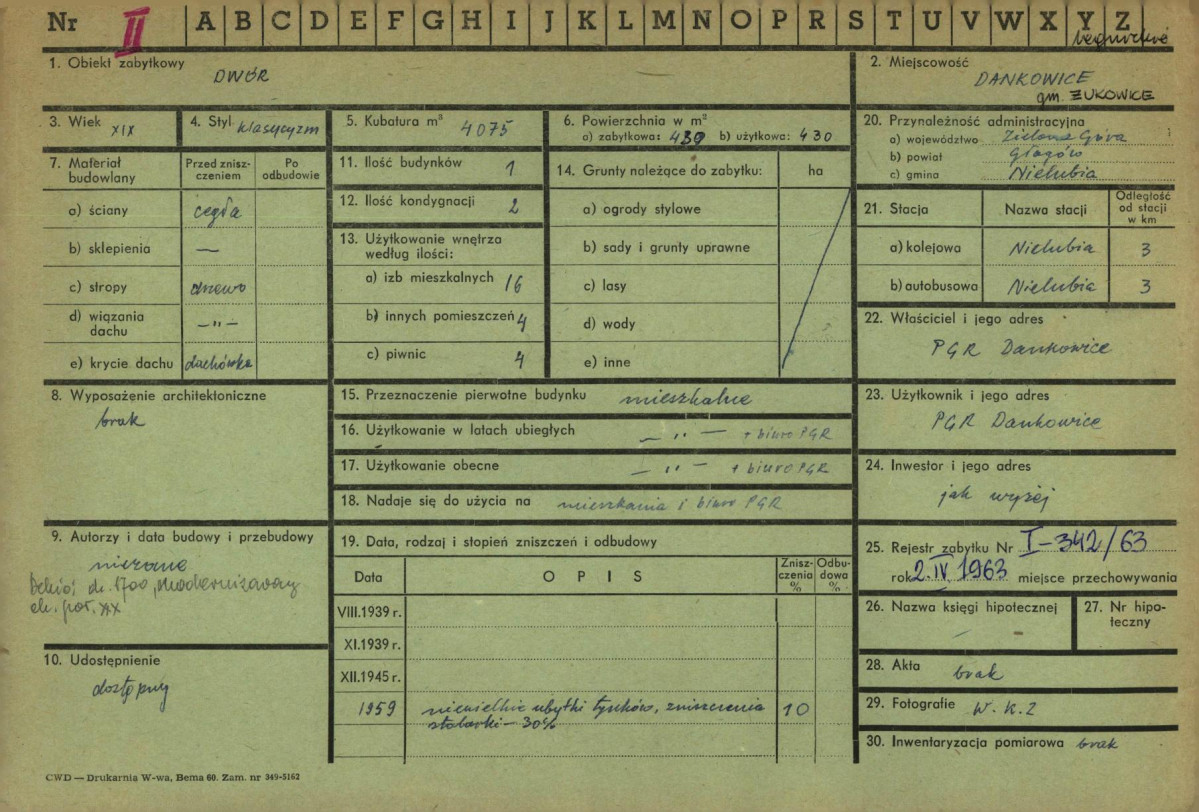 Nr II A B C D E F G H I J K L M N O P R S T U V W X Y Z
legnickie
1. Obiekt zabytkowy
DWÓR
2. Miejscowość
DANKOWICE
gm. ŻUKOWICE
3. Wiek XIX
4. Styl klasycyzm
5. Kubatura m³ 4075
6. Powierzchnia w m²
a) zabytkowa: 430 b) użytkowa: 430
20. Przynależność administracyjna
a) województwo Zielona Góra
b) powiat Głogów
c) gmina Nielubia
7. Materiał budowlany
Przed zniszczeniem
Po odbudowie
a) ściany cegła
b) sklepienia —
c) stropy drewno
d) wiązania dachu —„—
e) krycie dachu dachówka
11. Ilość budynków 1
12. Ilość kondygnacji 2
13. Użytkowanie wnętrza
według ilości:
a) izb mieszkalnych 16
b) innych pomieszczeń 4
c) piwnic 4
14. Grunty należące do zabytku: ha
a) ogrody stylowe
b) sady i grunty uprawne
c) lasy
d) wody
e) inne
21. Stacja Nazwa stacji Odległość od stacji w km
a) kolejowa Nielubia 3
b) autobusowa Nielubia 3
22. Właściciel i jego adres
PGR Dankowice
8. Wyposażenie architektoniczne
brak
15. Przeznaczenie pierwotne budynku mieszkalne
16. Użytkowanie w latach ubiegłych —„— + biuro PGR
17. Użytkowanie obecne —„— + biuro PGR
18. Nadaje się do użycia na mieszkania i biuro PGR
23. Użytkownik i jego adres
PGR Dankowice
24. Inwestor i jego adres
jak wyżej
9. Autorzy i data budowy i przebudowy
nieznane
Dehio: ok. 1700, modernizowany
ok. poł. XX
10. Udostępnienie
dostępny
19. Data, rodzaj i stopień zniszczeń i odbudowy
Data OPIS Zniszczenia % Odbudowa %
VIII.1939 r.
XI.1939 r.
XII.1945 r.
1959 niewielkie ubytki tynków, zniszczenia 10
stolarki — 30%
25. Rejestr zabytku Nr I-342/63
rok 2.IV 1963 miejsce przechowywania
26. Nazwa księgi hipotecznej —
27. Nr hipoteczny
28. Akta brak
29. Fotografie W.K.Z
30. Inwentaryzacja pomiarowa brak
CWD — Drukarnia W-wa, Bema 60. Zam. nr 349-5162